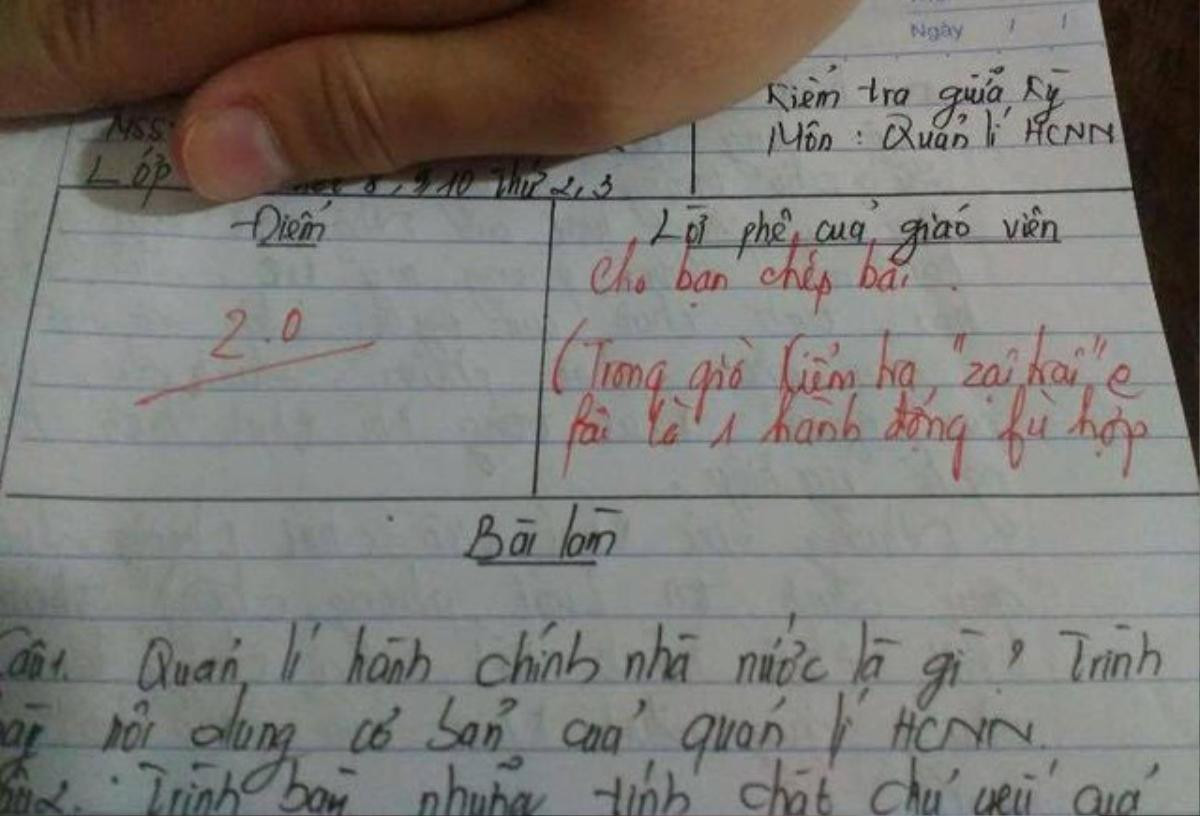 Ngày / /
Kiểm tra giữa kỳ
Môn : Quản lí HCNN
Mss
Lớp 8, 9, 10 thứ 2, 3
Điểm
Lời phê của giáo viên
Cho bạn chép bài.
2.0
(Trong giờ kiểm tra, "zại zai" e
fải là 1 hành động fù hợp
Bài làm
Câu1. Quản lí hành chính nhà nước là gì? Trình
bày nội dung cơ bản của quản lí HCNN.
Câu2. Trình bày những tính chất chủ yếu của